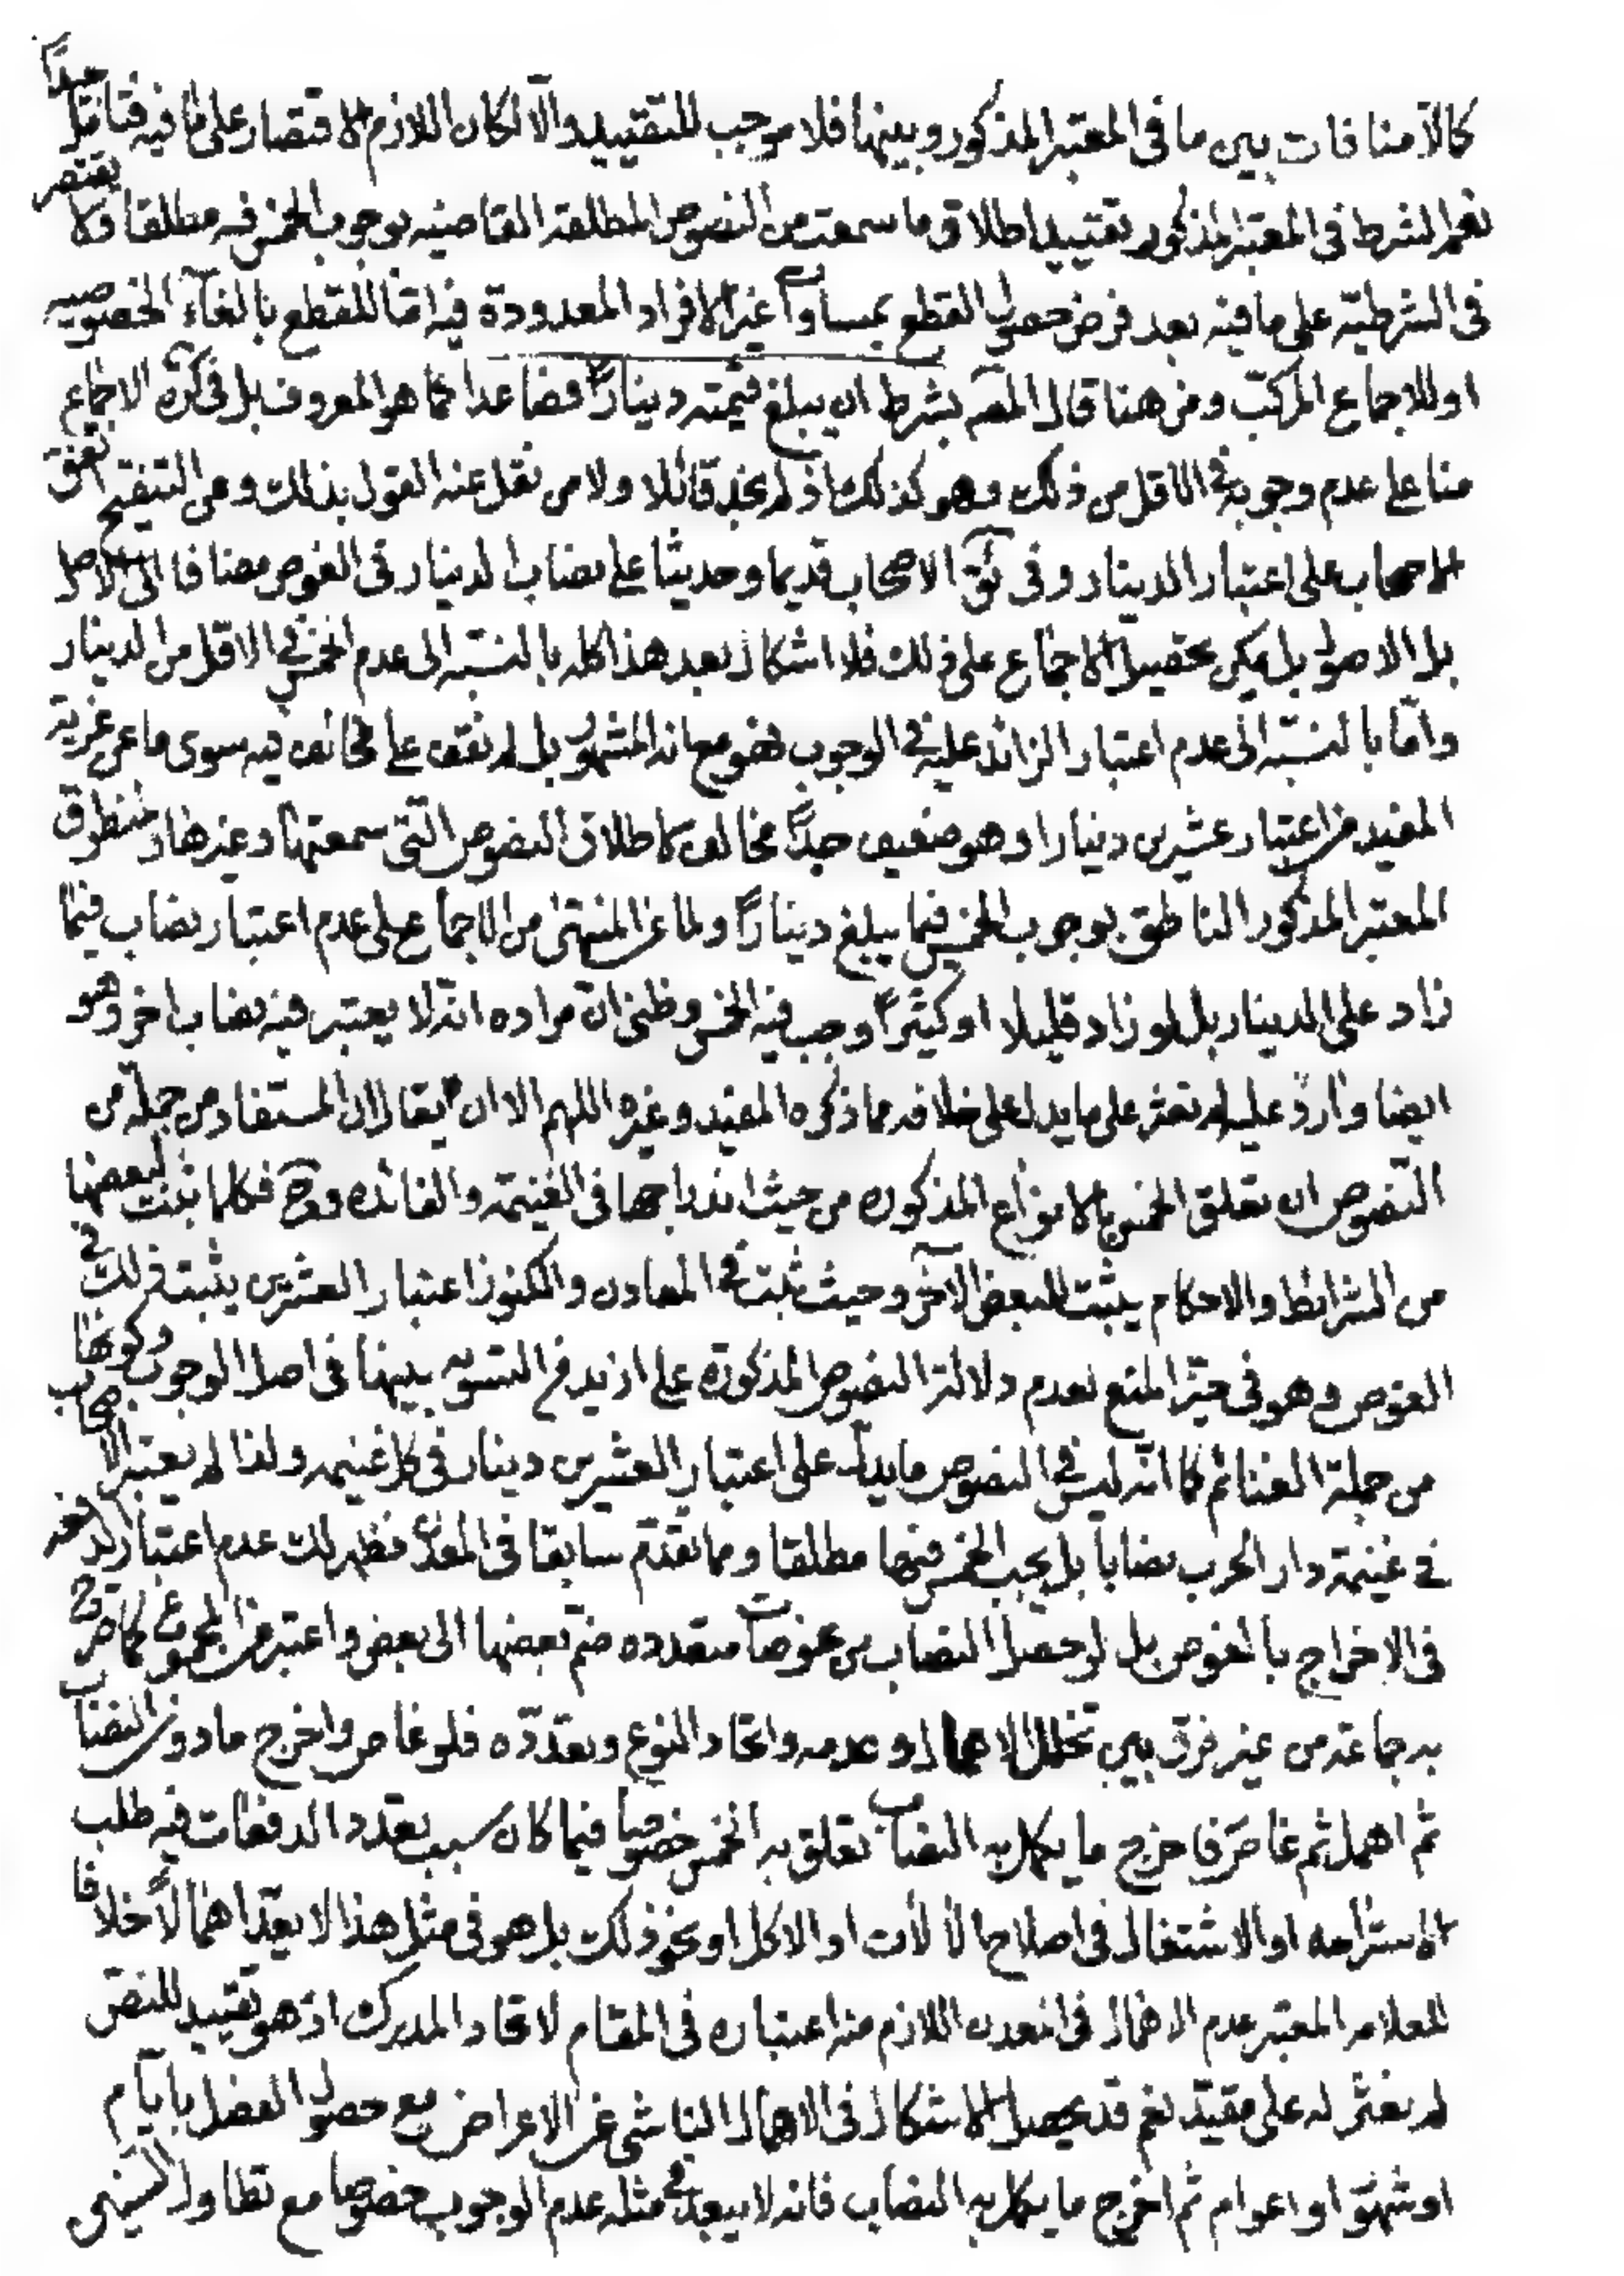 كما لا منافات بين ما في المعتبر المذكور وبينها فلا موجب للتقييد والا لكان اللازم الاقتصار على ما فيه فتامل جداً
نعم الشرط في المعتبر المذكور تقييد اطلاق ما سمعت من النصوص المطلقة القاضيه بوجوب الخمس فيه مطلقا فلا يقتصر
في الشرطيّة على ما فيه بعد فرض حصول القطع بمساوات غير الافراد المعدودة فيه امّا للقطع بالغاء الخصوصيه
او للاجماع المركّب ومن هنا قال المصّ بشرط ان يبلغ قيمته ديناراً فصاعدا كما هو المعروف بل في كره الاجماع
منا على عدم وجوبه في الاقل من ذلك وهو كذلك اذ لم نجد قائلا ولا من نقل عنه القول بذلك وعن التنقيح اتفق
الاصحاب على اعتبار الدينار وفي الاصحاب قديما وحديثا على نصاب الدينار في الغوص مضافا الى الاصل
بل الاصول بل يمكن تحصيل الاجماع على ذلك فلا اشكال بعد هذا كله بالنسبه الى عدم الخمس في الاقل من الدينار
وامّا بالنسبّه الى عدم اعتبار الزائد عليه في الوجوب فهو مع انه المشهور بل لم نقف على مخالف فيه سوى ما عن غرية
المفيد من اعتبار عشرين دينارا وهو ضعيف جداً مخالف لاطلاق النصوص التي سمعتها وغيرها ومنطوق
المعتبر المذكور الناطق بوجوب الخمس فيما يبلغ ديناراً ولما عن المنتهى من الاجماع على عدم اعتبار نصاب فيما
زاد على الدينار بل لو زاد قليلا او كثيراً وجب فيه الخمس وظني انّ مراده انّه لا يعتبر فيه نصاب اخر وهو
ايضا وارد عليه لم نعثر على ما يدل على خلافه مما ذكره المفيد وغيره اللهم الا ان يقال ان المستفاد من جملة من
النّصوص ان تعلق الخمس بالانواع المذكوره من حيث اندراجها في الغنيمة والفائده وح فكلما ثبت لبعضها
من الشرائط والاحكام يثبت للبعض الآخر وحيث ثبت في المعادن والكنوز اعتبار العشرين يثبت ذلك في
الغوص وهو في حيّز المنع لعدم دلالة النصوص المذكورة على ازيد من التسويه بينها في اصل الوجوب وكونها
من جملة الغنائم كما انّه ليس في النصوص ما يدلّ على اعتبار العشرين دينار في كل غنيمه ولذا لم يعتبر الاصحاب
في غنيمة دار الحرب نصاباً بل يجب الخمس فيها مطلقا ومما تقدّم سابقا في المعدن فظهر لك عدم اعتبار الدفعه
في الاخراج بالغوص بل لو حصل النصاب من غوصات متعدده ضمّ بعضها الى بعض واعتبر من المجموع كما صرّح
به جماعة من غير فرق بين تخلل الاهمال وعدمه واتحاد النوع وتعدّده فلو غاص واخرج ما دون النصاب
ثم اهمل ثم غاص فاخرج ما يكمل به النصاب تعلق به الخمس خصوصا فيما كان سبب تعدد الدفعات فيه طلب
الاستراحه او الاشتغال في اصلاح الالات او الاكل او نحو ذلك بل هو في مثل هذا لا يعدّ اهمالاً خلافا
للعلامه المعتبر عدم الاهمال في المعدن اللازم منه اعتباره في المقام لاتحاد المدرك اذ هو تقييد للنصّ
لم نعثر له على مقيّد نعم قد يحصل الاشكال في الاهمال الناشي عن الاعراض مع حصول الفصل بايّام
او شهور او اعوام ثم اخرج ما يكمل به النصاب فانه لا يبعد في مثله عدم الوجوب خصوصا مع تطاول السنين